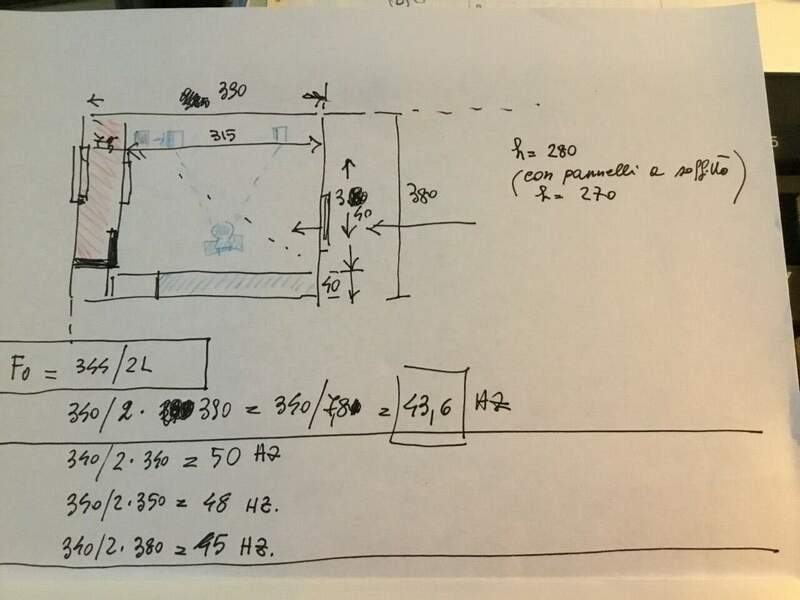 390
75
315
h = 280
(con pannelli a soffitto)
h = 270
380
40
40
F0 = 344/2L
340/2 · 390 = 340/7,8 = 43,6 HZ
340/2·340 = 50 HZ
340/2·350 = 48 HZ.
340/2·380 = 45 HZ.